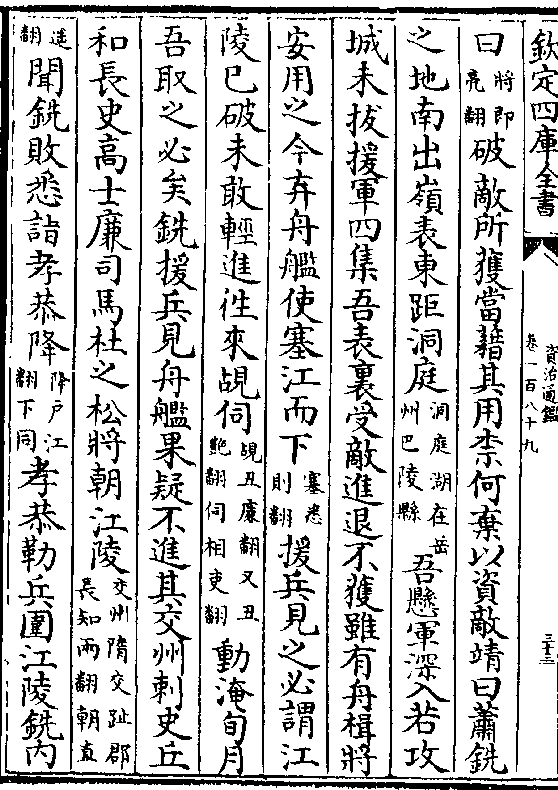 欽定四庫全書
資治通鑑
卷一百八十九
三十三
曰將即亮翻破敵所獲當藉其用柰何棄以資敵靖曰蕭銑
之地南出嶺表東距洞庭洞庭湖在岳州巴陵縣吾懸軍深入若攻
城未拔援軍四集吾表裏受敵進退不獲雖有舟楫將
安用之今弃舟艦使塞江而下塞悉則翻援兵見之必謂江
陵已破未敢輕進徃來覘伺覘丑廉翻又丑艶翻伺相吏翻動淹旬月
吾取之必矣銑援兵見舟艦果疑不進其交州刺史丘
和長史高士廉司馬杜之松將朝江陵交州隋交趾郡長知兩翻朝直
遥翻聞銑敗悉詣孝恭降降戶江翻下同孝恭勒兵圍江陵銑内